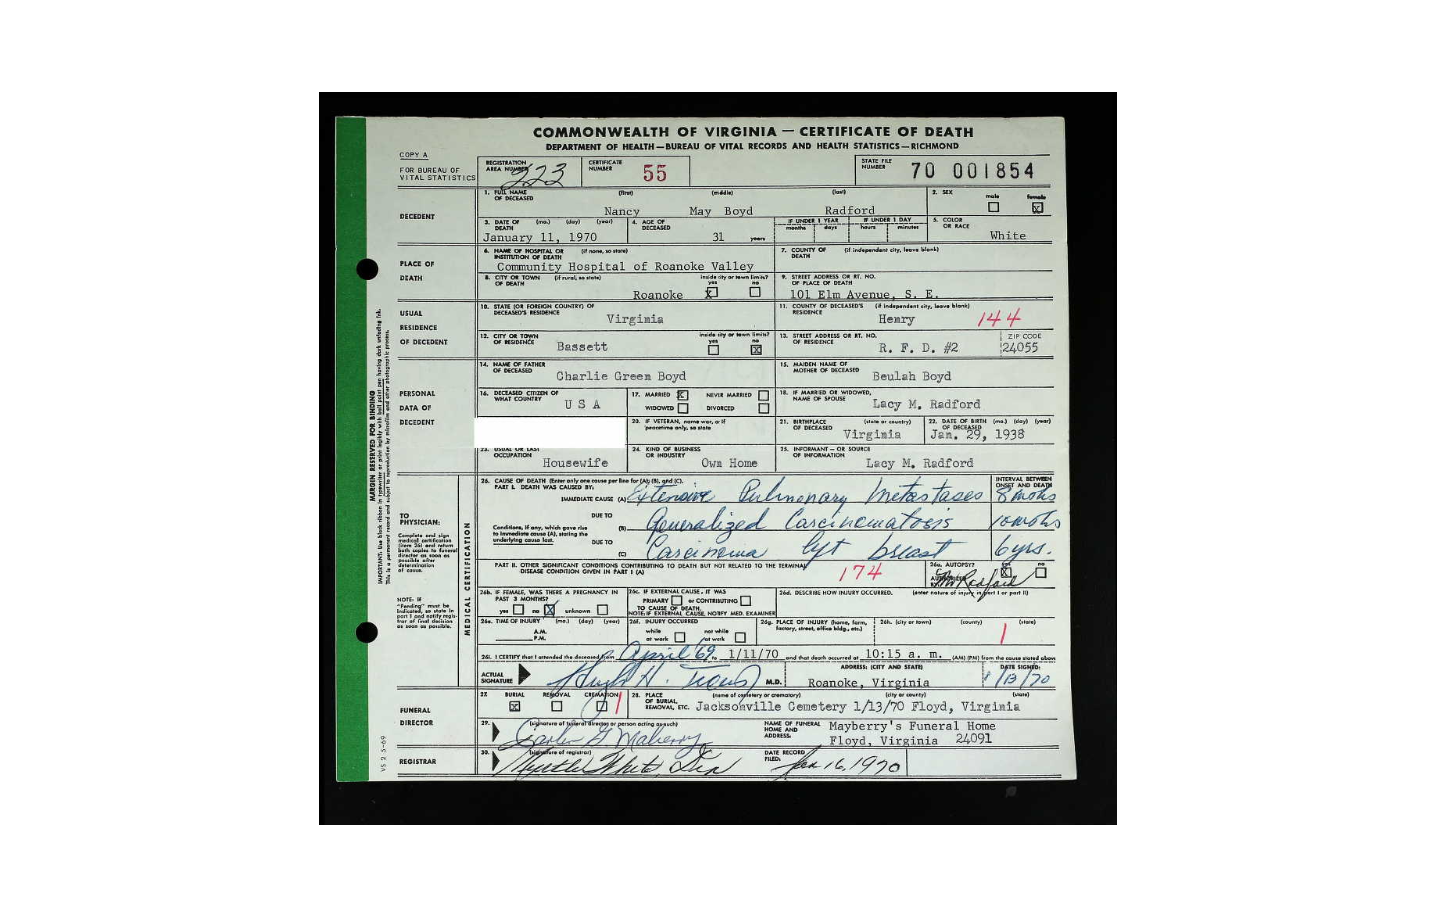 COMMONWEALTH OF VIRGINIA — CERTIFICATE OF DEATH
DEPARTMENT OF HEALTH—BUREAU OF VITAL RECORDS AND HEALTH STATISTICS—RICHMOND
COPY A
FOR BUREAU OF
VITAL STATISTICS
REGISTRATION
AREA NUMBER 223
CERTIFICATE
NUMBER 55
STATE FILE
NUMBER 70 001854
DECEDENT
1. FULL NAME (first) (middle) (last)
OF DECEASED
Nancy May Boyd Radford
2. SEX male female X
3. DATE OF (mo.) (day) (year)
DEATH
January 11, 1970
4. AGE OF
DECEASED
31 years
IF UNDER 1 YEAR IF UNDER 1 DAY
months days hours minutes
5. COLOR
OR RACE
White
PLACE OF
DEATH
6. NAME OF HOSPITAL OR (if none, so state)
INSTITUTION OF DEATH
Community Hospital of Roanoke Valley
7. COUNTY OF (if independent city, leave blank)
DEATH
8. CITY OR TOWN (if rural, so state) inside city or town limits?
OF DEATH yes no
Roanoke X
9. STREET ADDRESS OR RT. NO.
OF PLACE OF DEATH
101 Elm Avenue, S. E.
USUAL
RESIDENCE
OF DECEDENT
10. STATE (OR FOREIGN COUNTRY) OF
DECEASED'S RESIDENCE
Virginia
11. COUNTY OF DECEASED'S (if independent city, leave blank)
RESIDENCE
Henry 144
12. CITY OR TOWN inside city or town limits?
OF RESIDENCE yes no
Bassett X
13. STREET ADDRESS OR RT. NO. ZIP CODE
OF RESIDENCE
R. F. D. #2 24055
PERSONAL
DATA OF
DECEDENT
14. NAME OF FATHER
OF DECEASED
Charlie Green Boyd
15. MAIDEN NAME OF
MOTHER OF DECEASED
Beulah Boyd
16. DECEASED CITIZEN OF
WHAT COUNTRY
U S A
17. MARRIED X NEVER MARRIED
WIDOWED DIVORCED
18. IF MARRIED OR WIDOWED,
NAME OF SPOUSE
Lacy M. Radford
20. IF VETERAN, name war, or if
peacetime only, so state
21. BIRTHPLACE (state or country)
OF DECEASED
Virginia
22. DATE OF BIRTH (mo.) (day) (year)
OF DECEASED
Jan. 29, 1938
23. USUAL OR LAST
OCCUPATION
Housewife
24. KIND OF BUSINESS
OR INDUSTRY
Own Home
25. INFORMANT — OR SOURCE
OF INFORMATION
Lacy M. Radford
MARGIN RESERVED FOR BINDING
MEDICAL CERTIFICATION
TO
PHYSICIAN:
Complete and sign
medical certification
(item 26) and return
both copies to funeral
director as soon as
possible after
determination
of cause.
NOTE: If
"Pending" must be
indicated, so state in
part I and notify regis-
trar of final decision
as soon as possible.
26. CAUSE OF DEATH (Enter only one cause per line for (A), (B), and (C).
PART I. DEATH WAS CAUSED BY:
INTERVAL BETWEEN
ONSET AND DEATH
IMMEDIATE CAUSE (A) Extensive Pulmonary Metastases 8 mohs
DUE TO
Conditions, if any, which gave rise
to immediate cause (A), stating the
underlying cause last.
(B) Generalized Carcinematosis 10 mohs
DUE TO
(C) Carcinema left breast 6 yrs.
PART II. OTHER SIGNIFICANT CONDITIONS CONTRIBUTING TO DEATH BUT NOT RELATED TO THE TERMINAL
DISEASE CONDITION GIVEN IN PART I (A)
174
26a. AUTOPSY? yes X no
Radford
26b. IF FEMALE, WAS THERE A PREGNANCY IN
PAST 3 MONTHS?
yes no X unknown
26c. IF EXTERNAL CAUSE, IT WAS
PRIMARY or CONTRIBUTING
TO CAUSE OF DEATH.
NOTE: IF EXTERNAL CAUSE, NOTIFY MED. EXAMINER
26d. DESCRIBE HOW INJURY OCCURRED. (enter nature of injury in part I or part II)
26e. TIME OF INJURY (mo.) (day) (year)
A.M.
P.M.
26f. INJURY OCCURRED
while not while
at work at work
26g. PLACE OF INJURY (home, farm,
factory, street, office bldg., etc.)
26h. (city or town) (county) (state)
26i. I CERTIFY that I attended the deceased from April 69 to 1/11/70 and that death occurred at 10:15 a. m. (AM) (PM) from the cause stated above
ACTUAL
SIGNATURE Hugh H. M.D.
ADDRESS: (CITY AND STATE)
Roanoke, Virginia
DATE SIGNED:
1/13/70
FUNERAL
DIRECTOR
27. BURIAL REMOVAL CREMATION
X
28. PLACE (name of cemetery or crematory) (city or county) (state)
OF BURIAL,
REMOVAL, ETC. Jacksonville Cemetery 1/13/70 Floyd, Virginia
29. (signature of funeral director or person acting as such)
NAME OF FUNERAL
HOME AND
ADDRESS.
Mayberry's Funeral Home
Floyd, Virginia 24091
REGISTRAR
30. (signature of registrar)
Myrtle White, Dep
DATE RECORD
FILED: Jan 16, 1970
VS 2 5-69